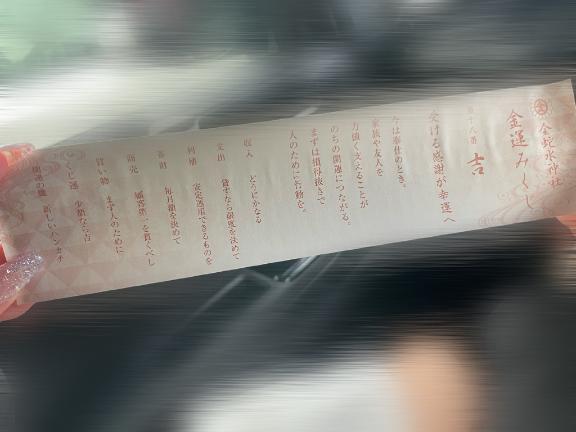 金蛇水神社
金運みくじ
第十八番 吉
受ける感謝が幸運へ
今は奉仕のとき。
家族や友人を
力強く支えることが
のちの開運につながる。
まずは損得抜きで
人のために行動を。
収入 どうにかなる
支出 貸すなら限度を決めて
利殖 安定運用できるものを
蓄財 毎月額を決めて
商売 顧客第一を貫くべし
買い物 まず人のために
くじ運 少額なら吉
開運の鍵 新しいハンカチ